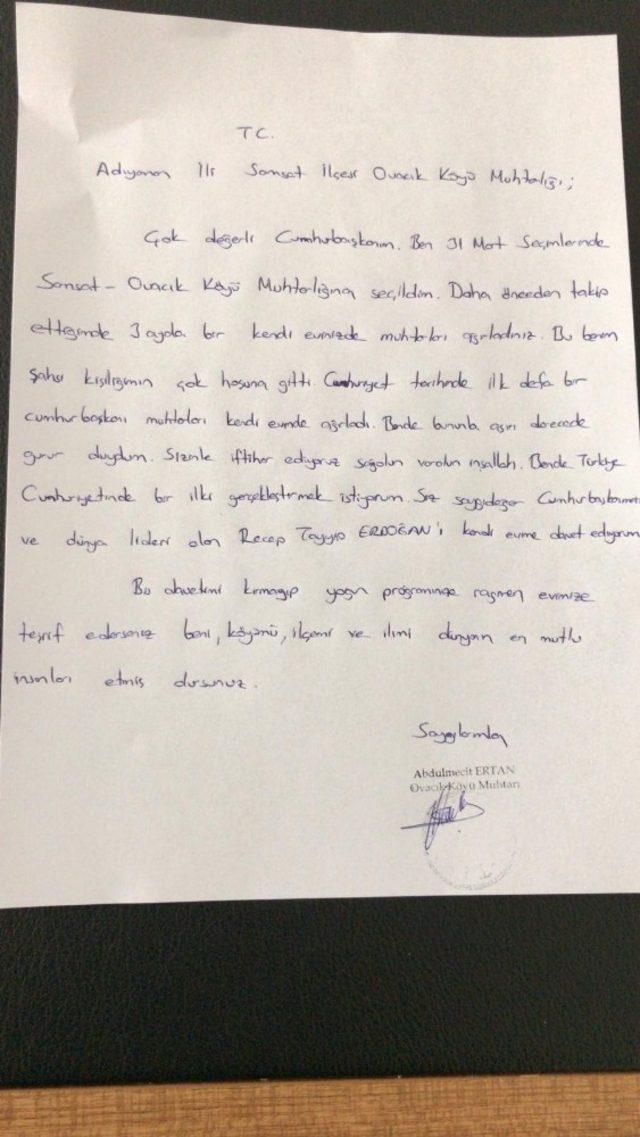 TC.
Adıyaman İli Samsat İlçesi Ovacık Köyü Muhtarlığı;
Çok değerli Cumhurbaşkanım. Ben 31 Mart Seçimlerinde
Samsat - Ovacık Köyü Muhtarlığına seçildim. Daha önceden takip
ettiğimde 3 ayda bir kendi evinizde muhtarları ağırladınız. Bu benim
şahsi kişiliğimin çok hoşuna gitti. Cumhuriyet tarihinde ilk defa bir
cumhurbaşkanı muhtarları kendi evinde ağırladı. Bende bununla aşırı derecede
gurur duydum. Sizinle iftihar ediyoruz sağolun varolun inşallah. Bende Türkiye
Cumhuriyetinde bir ilki gerçekleştirmek istiyorum. Siz saygıdeğer Cumhurbaşkanımız
ve dünya lideri olan Recep Tayyip ERDOĞAN'ı kendi evime davet ediyorum
Bu davetimi kırmayıp yoğun programınıza rağmen evimize
teşrif ederseniz beni, köyümü, ilçemi ve ilimi dünyanın en mutlu
insanları etmiş olursunuz.
Saygılarımla
Abdulmecit ERTAN
Ovacık Köyü Muhtarı